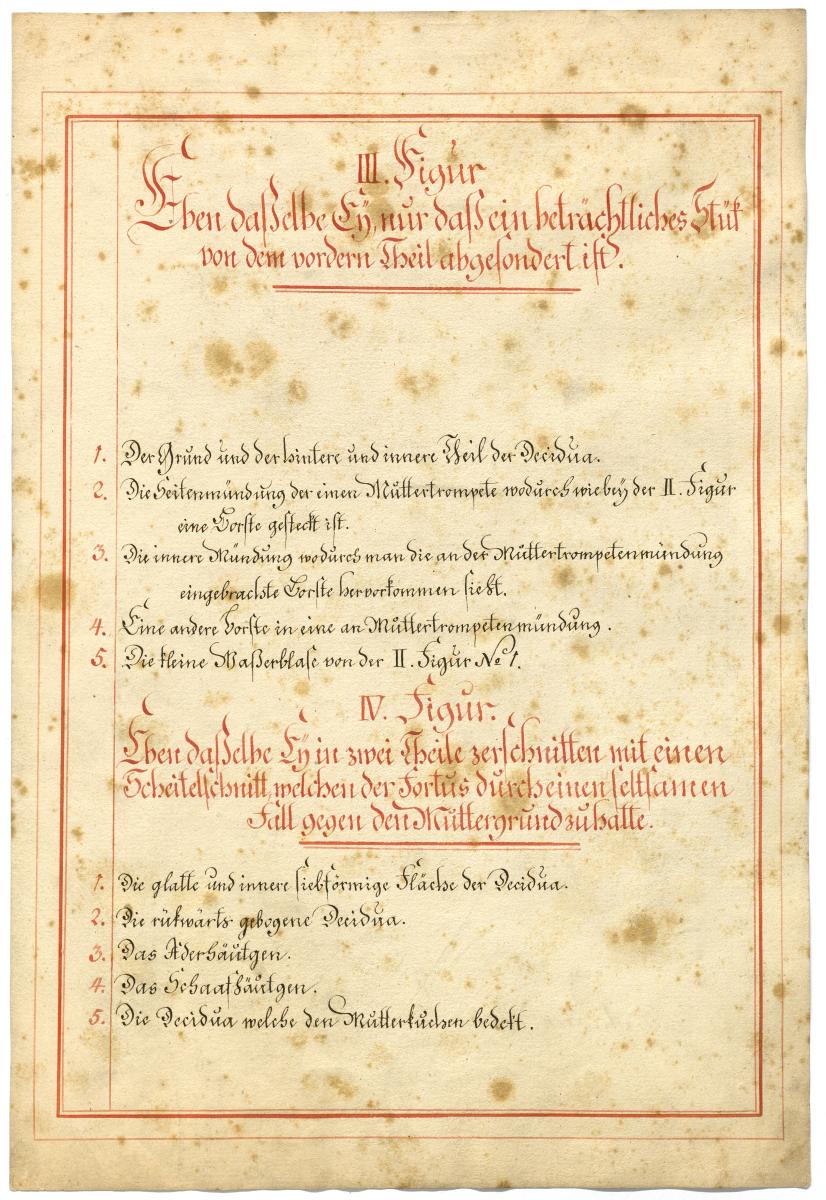 III. Figur
Eben daßelbe Ey, nur daß ein beträchtliches Stük
von dem vordern Theil abgesondert ist.
1. Der Grund und der hintere und innere Theil der Decidua.
2. Die Seitenmündung der einen Muttertrompete wodurch wie bey der II. Figur
eine Borste gesteckt ist.
3. Die innere Mündung wodurch man die an der Muttertrompetenmündung
eingebrachte Borste hervorkommen sieht.
4. Eine andere Borste in eine an Muttertrompetenmündung.
5. Die kleine Waßerblase von der II. Figur No 1.
IV. Figur.
Eben daßelbe Ey in zwei Theile zerschnitten mit einen
Scheitelschnitt, welchen der Fortus durch einen seltsamen
Fall gegen den Muttergrund zu hatte.
1. Die glatte und innere siebförmige Fläche der Decidua.
2. Die rükwärts gebogene Decidua.
3. Das Aderhäutgen.
4. Das Schaafhäutgen.
5. Die Decidua welche den Mutterkuchen bedekt.